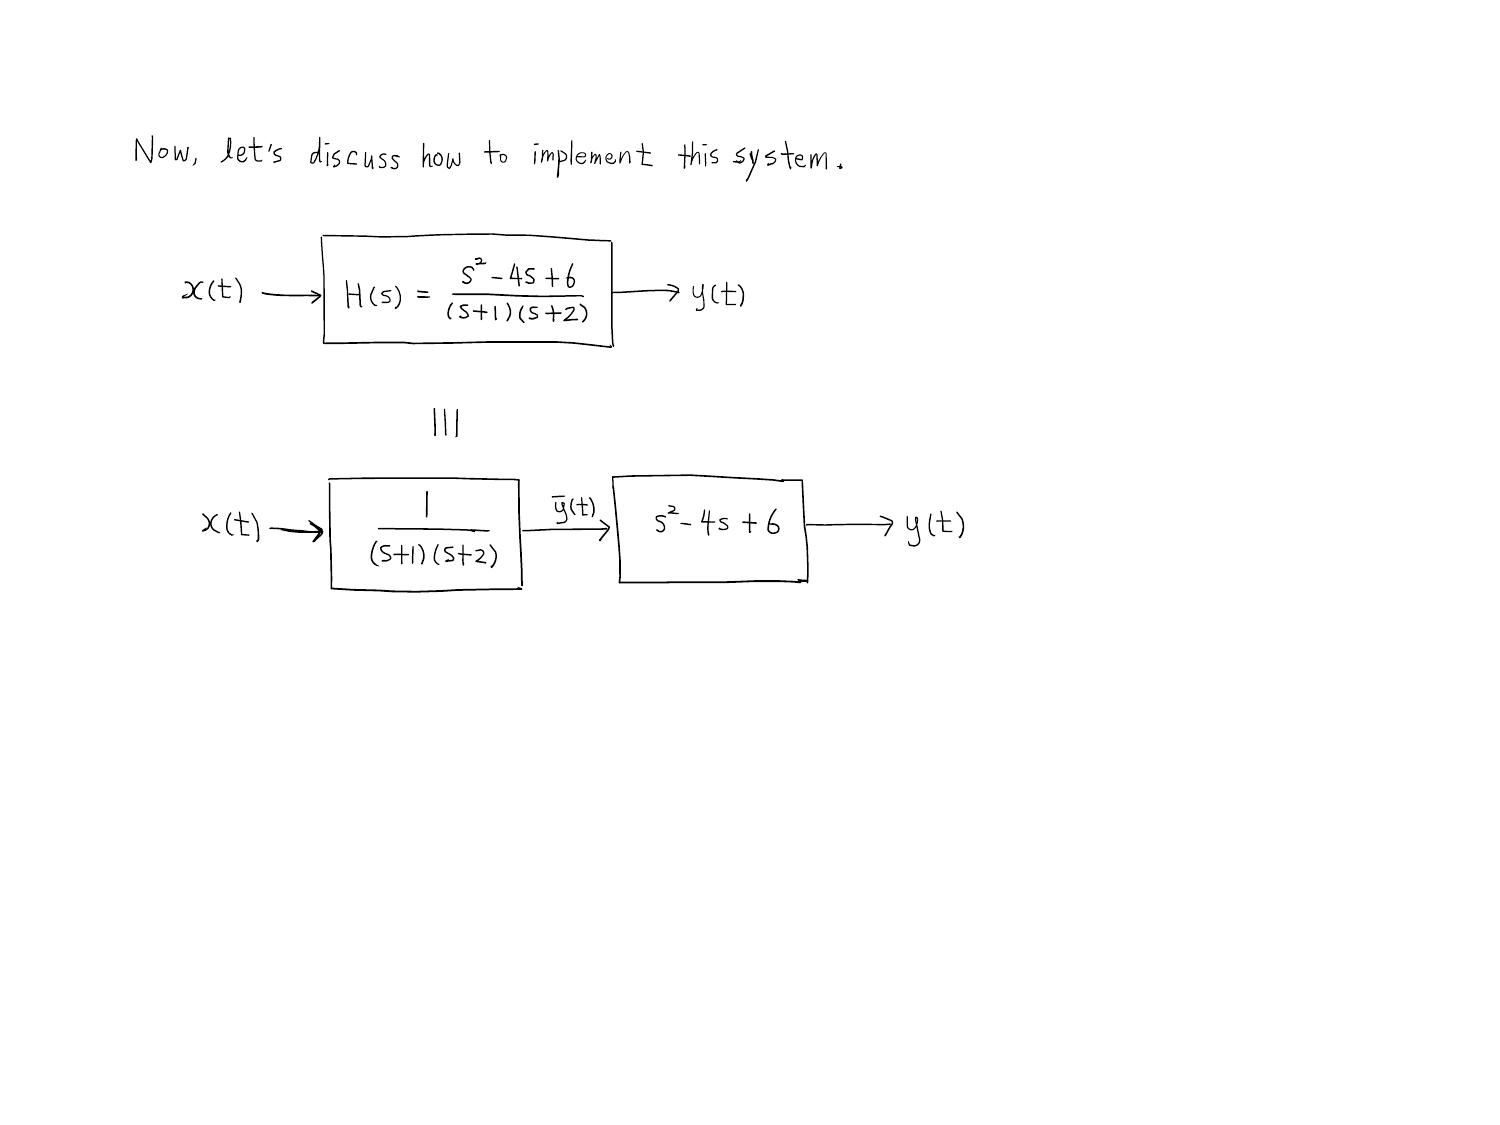 Now, let's discuss how to implement this system.
x(t) → H(s) = (s² - 4s + 6) / ((s+1)(s+2)) → y(t)
|||
x(t) → 1 / ((s+1)(s+2)) → ȳ(t) → s² - 4s + 6 → y(t)